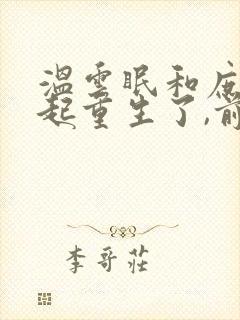 温雲眠和庶
起重生了,前
李哥莊